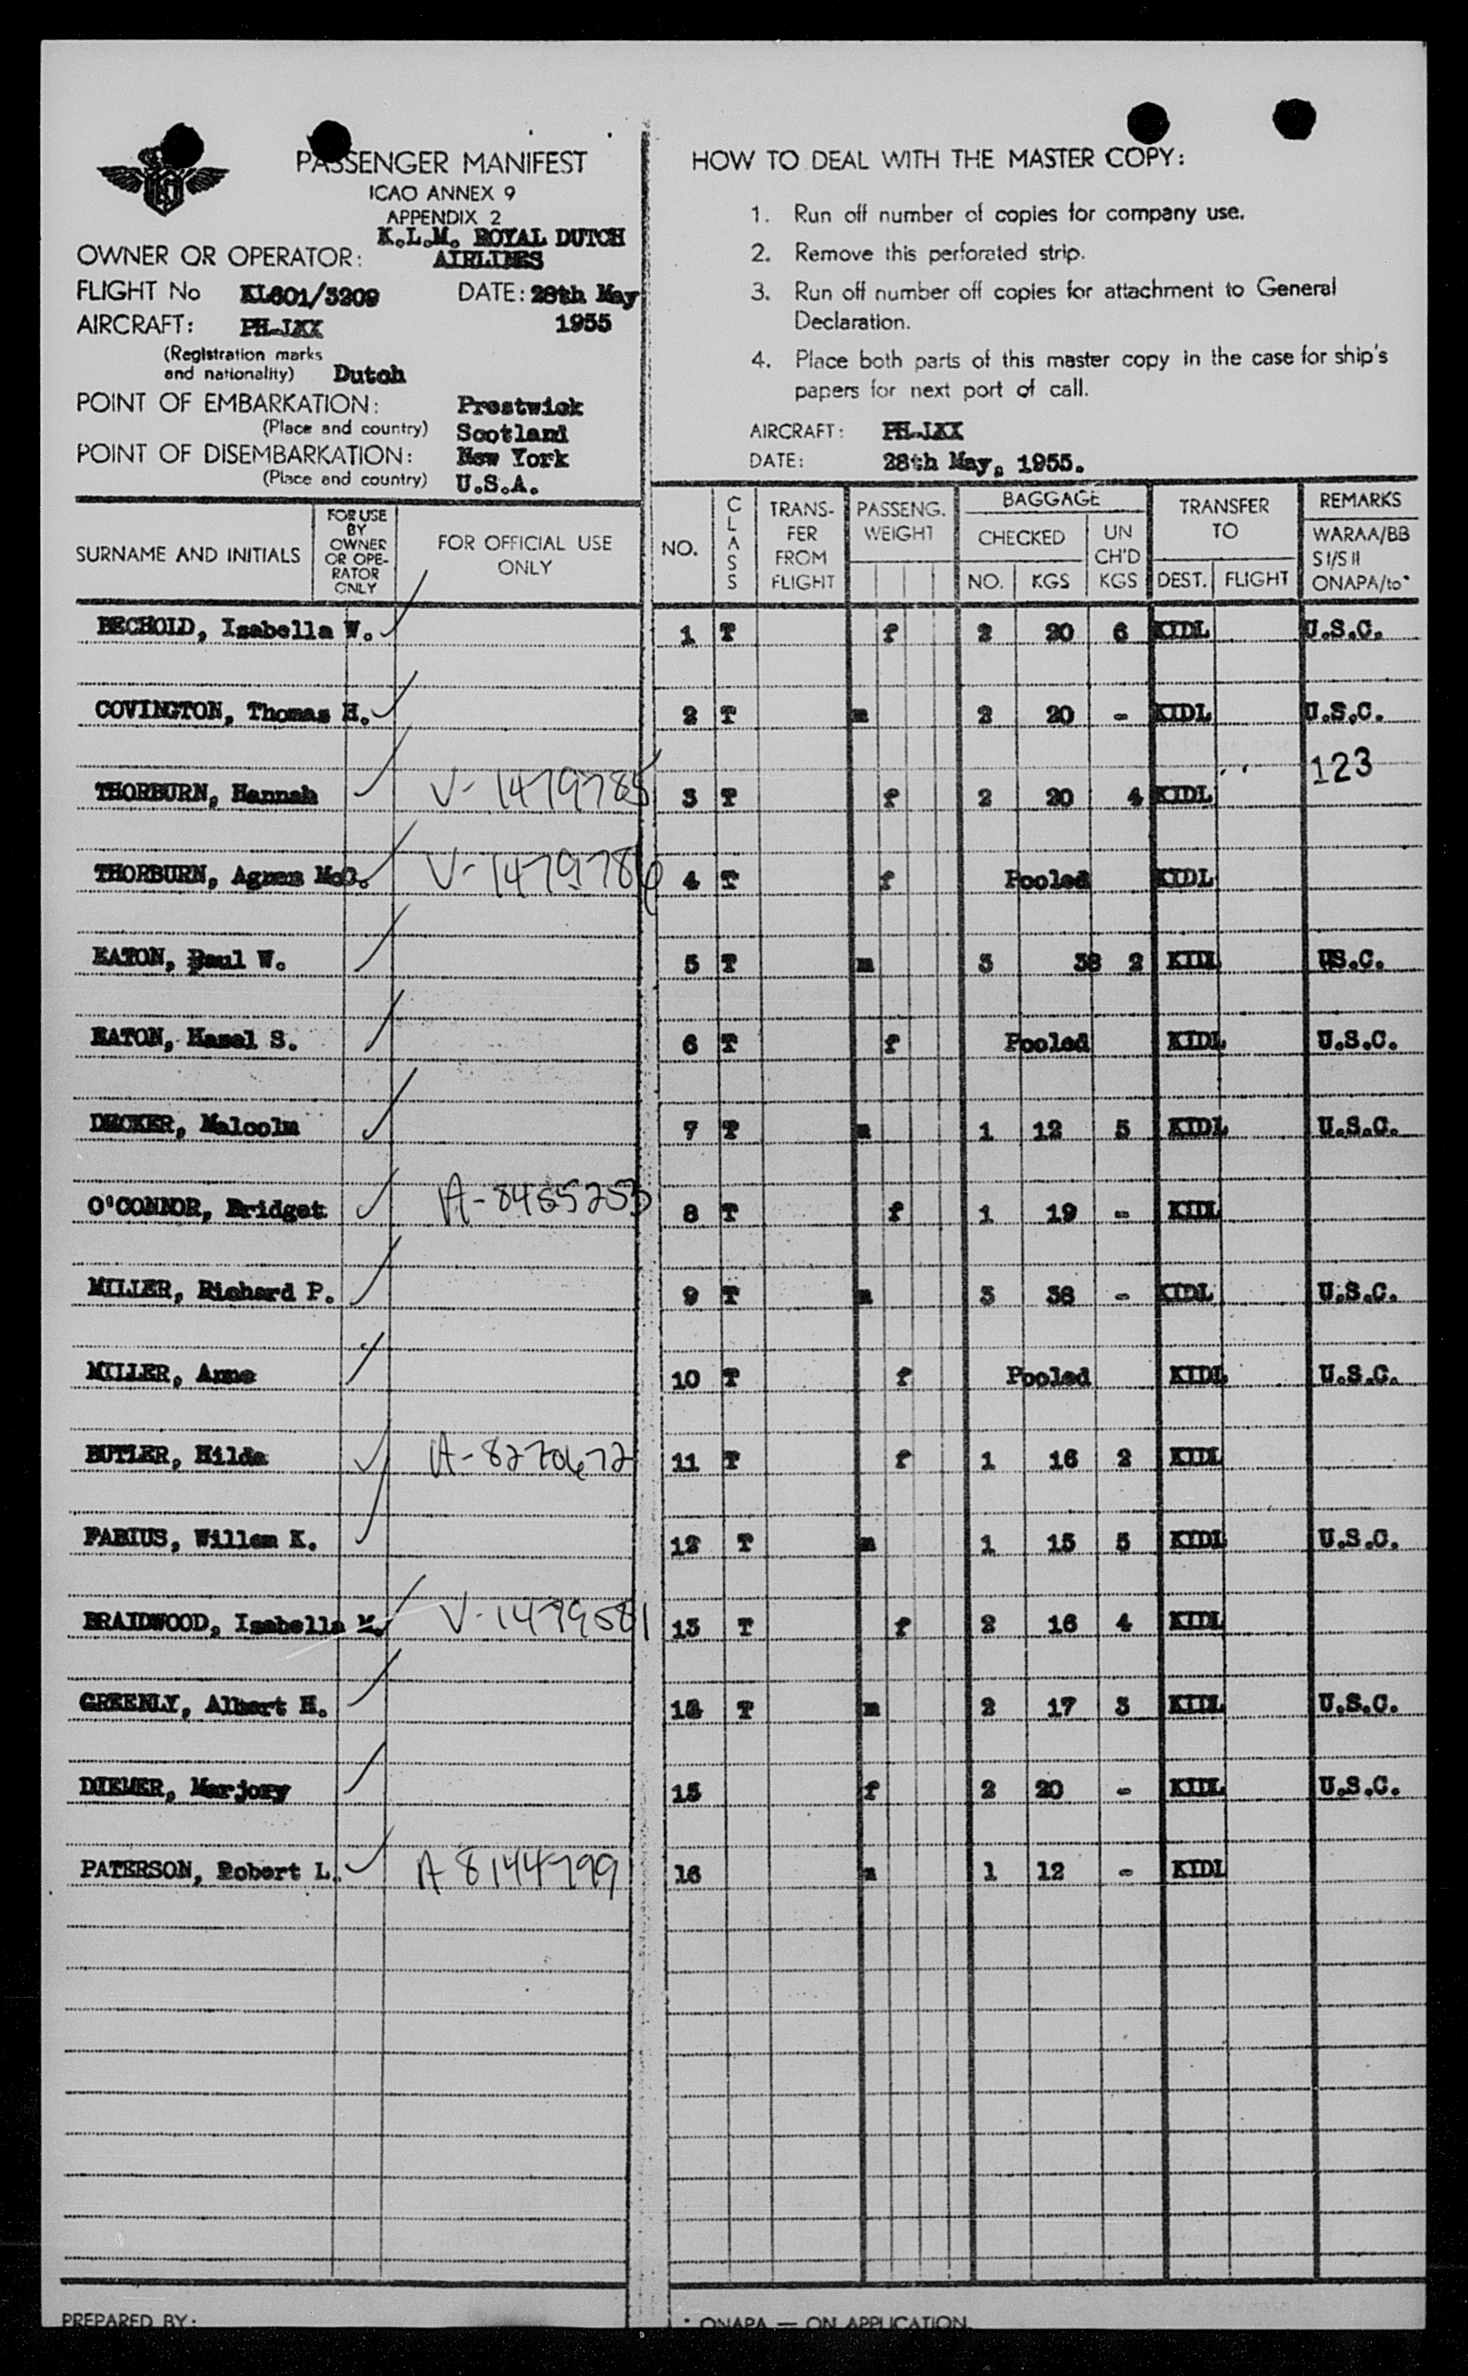 PASSENGER MANIFEST
ICAO ANNEX 9
APPENDIX 2
OWNER OR OPERATOR: K.L.M. ROYAL DUTCH
AIRLINES
FLIGHT No KL601/3209 DATE: 28th May
AIRCRAFT: PH-LKX 1955
(Registration marks
and nationality) Dutch
POINT OF EMBARKATION: Prestwick
(Place and country) Scotland
POINT OF DISEMBARKATION: New York
(Place and country) U.S.A.
HOW TO DEAL WITH THE MASTER COPY:
1. Run off number of copies for company use.
2. Remove this perforated strip.
3. Run off number off copies for attachment to General
Declaration.
4. Place both parts of this master copy in the case for ship's
papers for next port of call.
AIRCRAFT: PH-LKX
DATE: 28th May, 1955.
SURNAME AND INITIALS FOR USE BY OWNER OR OPE-RATOR ONLY FOR OFFICIAL USE ONLY NO. CLASS TRANS-FER FROM FLIGHT PASSENG. WEIGHT BAGGAGE CHECKED NO. KGS UN CH'D KGS TRANSFER TO DEST. FLIGHT REMARKS WARAA/BB S I/S II ONAPA/to*
BECHOLD, Isabella W. 1 T f 2 20 6 KIDL U.S.C.
COVINGTON, Thomas H. 2 T m 2 20 - KIDL U.S.C.
123
THORBURN, Hannah V-1479785 3 T f 2 20 4 KIDL
THORBURN, Agnes McC. V-1479786 4 T f Pooled KIDL
EATON, Paul W. 5 T m 3 38 2 KIDL US.C.
EATON, Hazel S. 6 T f Pooled KIDL U.S.C.
DECKER, Malcolm 7 T m 1 12 5 KIDL U.S.C.
O'CONNOR, Bridget A-8455253 8 T f 1 19 - KIDL
MILLER, Richard P. 9 T m 3 38 - KIDL U.S.C.
MILLER, Anne 10 T f Pooled KIDL U.S.C.
BUTLER, Hilda A-8270672 11 T f 1 16 2 KIDL
FABIUS, Willem K. 12 T m 1 15 5 KIDL U.S.C.
BRAIDWOOD, Isabella M. V-1479581 13 T f 2 16 4 KIDL
GREENLY, Albert H. 14 T m 2 17 3 KIDL U.S.C.
DIEMER, Marjory 15 f 2 20 - KIDL U.S.C.
PATERSON, Robert L. A 8144799 16 m 1 12 - KIDL
PREPARED BY:
* ONAPA — ON APPLICATION.